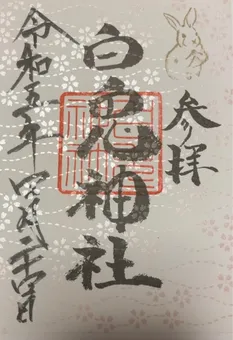 参拝
白兎神社
令和五年 四月二十四日